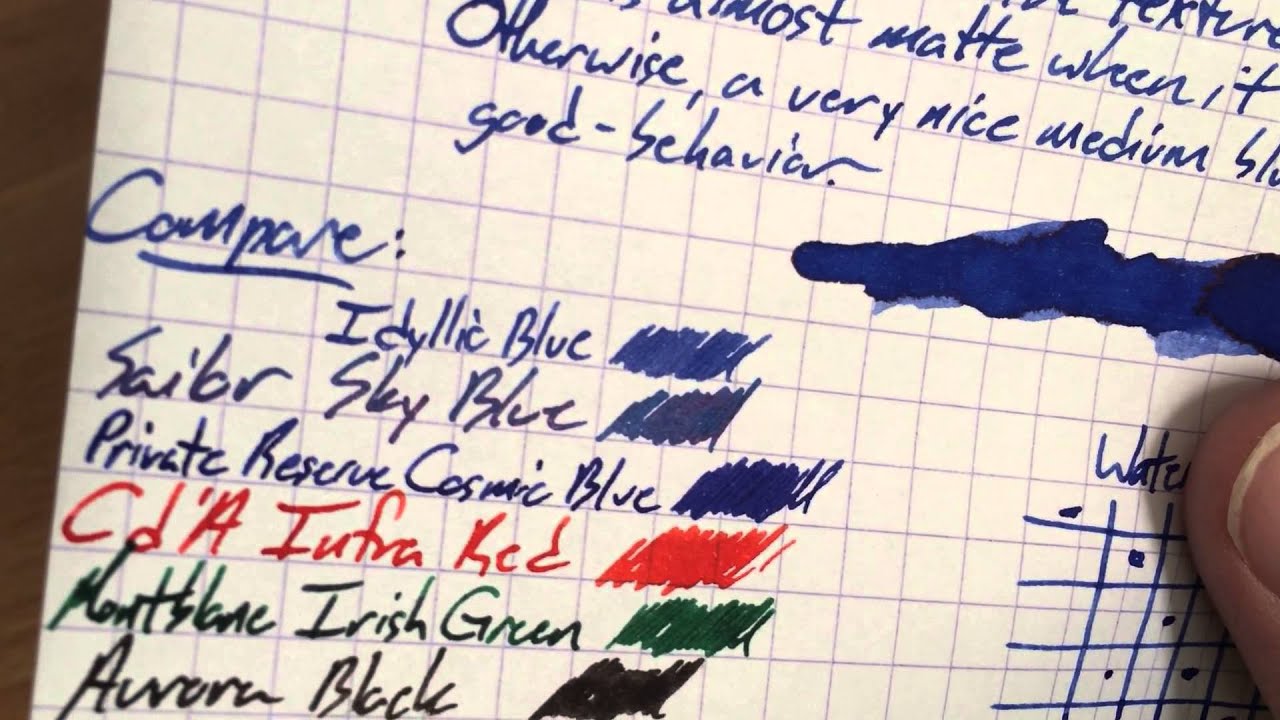 texture
almost matte when it
Otherwise, a very nice medium
good-behavior.
Compare:
Idyllic Blue
Sailor Sky Blue
Private Reserve Cosmic Blue
Cd'A Infra Red
Montblanc Irish Green
Aurora Black
Water